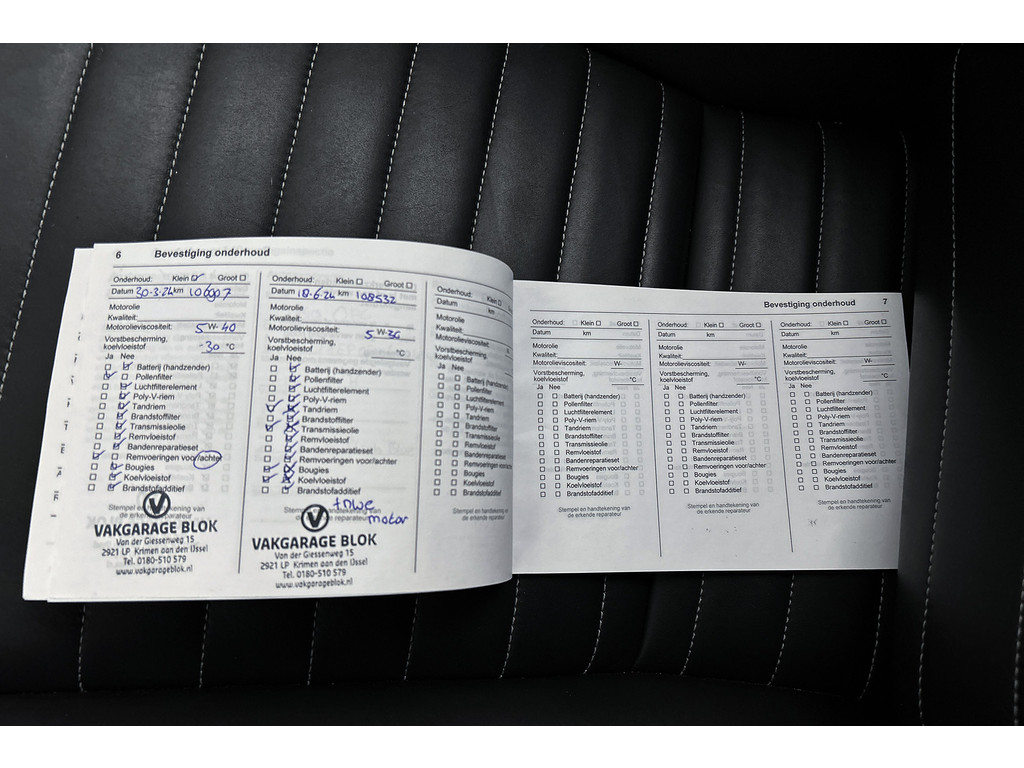 6 Bevestiging onderhoud
Onderhoud: Klein Groot
Datum 30-3-24 km 106907
Motorolie
Kwaliteit:
Motorolieviscositeit: 5 W- 40
Vorstbescherming,
koelvloeistof -30 °C
Ja Nee
Batterij (handzender)
Pollenfilter
Luchtfilterelement
Poly-V-riem
Tandriem
Brandstoffilter
Transmissieolie
Remvloeistof
Bandenreparatieset
Remvoeringen voor/achter
Bougies
Koelvloeistof
Brandstofadditief
Stempel en handtekening van
de erkende reparateur
VAKGARAGE BLOK
Van der Giessenweg 15
2921 LP Krimpen aan den IJssel
Tel. 0180-510 579
www.vakgarageblok.nl
Onderhoud: Klein Groot
Datum 18-6-24 km 108532
Motorolie
Kwaliteit:
Motorolieviscositeit: 5 W-30
Vorstbescherming,
koelvloeistof °C
Ja Nee
Batterij (handzender)
Pollenfilter
Luchtfilterelement
Poly-V-riem
Tandriem
Brandstoffilter
Transmissieolie
Remvloeistof
Bandenreparatieset
Remvoeringen voor/achter
Bougies
Koelvloeistof
Brandstofadditief
Stempel en handtekening van
de erkende reparateur
motor
VAKGARAGE BLOK
Van der Giessenweg 15
2921 LP Krimpen aan den IJssel
Tel. 0180-510 579
www.vakgarageblok.nl
Onderhoud: Klein
Datum km
Motorolie
Kwaliteit:
Motorolieviscositeit:
Vorstbescherming,
koelvloeistof
Ja Nee
Batterij (handzender)
Pollenfilter
Luchtfilterelement
Poly-V-riem
Tandriem
Brandstoffilter
Transmissieolie
Remvloeistof
Bandenreparatieset
Remvoeringen voor/achter
Bougies
Koelvloeistof
Brandstofadditief
Stempel en handtekening van
de erkende reparateur
Bevestiging onderhoud 7
Onderhoud: Klein Groot
Datum km
Motorolie
Kwaliteit:
Motorolieviscositeit: W-
Vorstbescherming,
koelvloeistof °C
Ja Nee
Batterij (handzender)
Pollenfilter
Luchtfilterelement
Poly-V-riem
Tandriem
Brandstoffilter
Transmissieolie
Remvloeistof
Bandenreparatieset
Remvoeringen voor/achter
Bougies
Koelvloeistof
Brandstofadditief
Stempel en handtekening van
de erkende reparateur
Onderhoud: Klein Groot
Datum km
Motorolie
Kwaliteit:
Motorolieviscositeit: W-
Vorstbescherming,
koelvloeistof °C
Ja Nee
Batterij (handzender)
Pollenfilter
Luchtfilterelement
Poly-V-riem
Tandriem
Brandstoffilter
Transmissieolie
Remvloeistof
Bandenreparatieset
Remvoeringen voor/achter
Bougies
Koelvloeistof
Brandstofadditief
Stempel en handtekening van
de erkende reparateur
Onderhoud: Klein Groot
Datum km
Motorolie
Kwaliteit:
Motorolieviscositeit: W-
Vorstbescherming,
koelvloeistof °C
Ja Nee
Batterij (handzender)
Pollenfilter
Luchtfilterelement
Poly-V-riem
Tandriem
Brandstoffilter
Transmissieolie
Remvloeistof
Bandenreparatieset
Remvoeringen voor/achter
Bougies
Koelvloeistof
Brandstofadditief
Stempel en handtekening van
de erkende reparateur